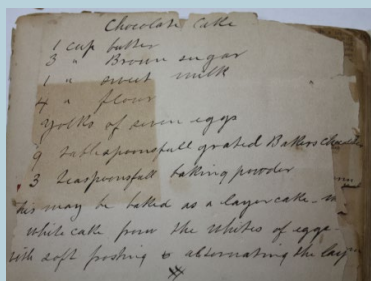 Chocolate Cake
1 cup butter
3 " Brown sugar
1 " sweet milk
4 " flour
Yolks of seven eggs
9 tablespoonsfull grated Bakers
3 teaspoonsfull baking powder
this may be baked as a layer cake -
white cake from the whites of eggs -
with soft frosting & alternating the